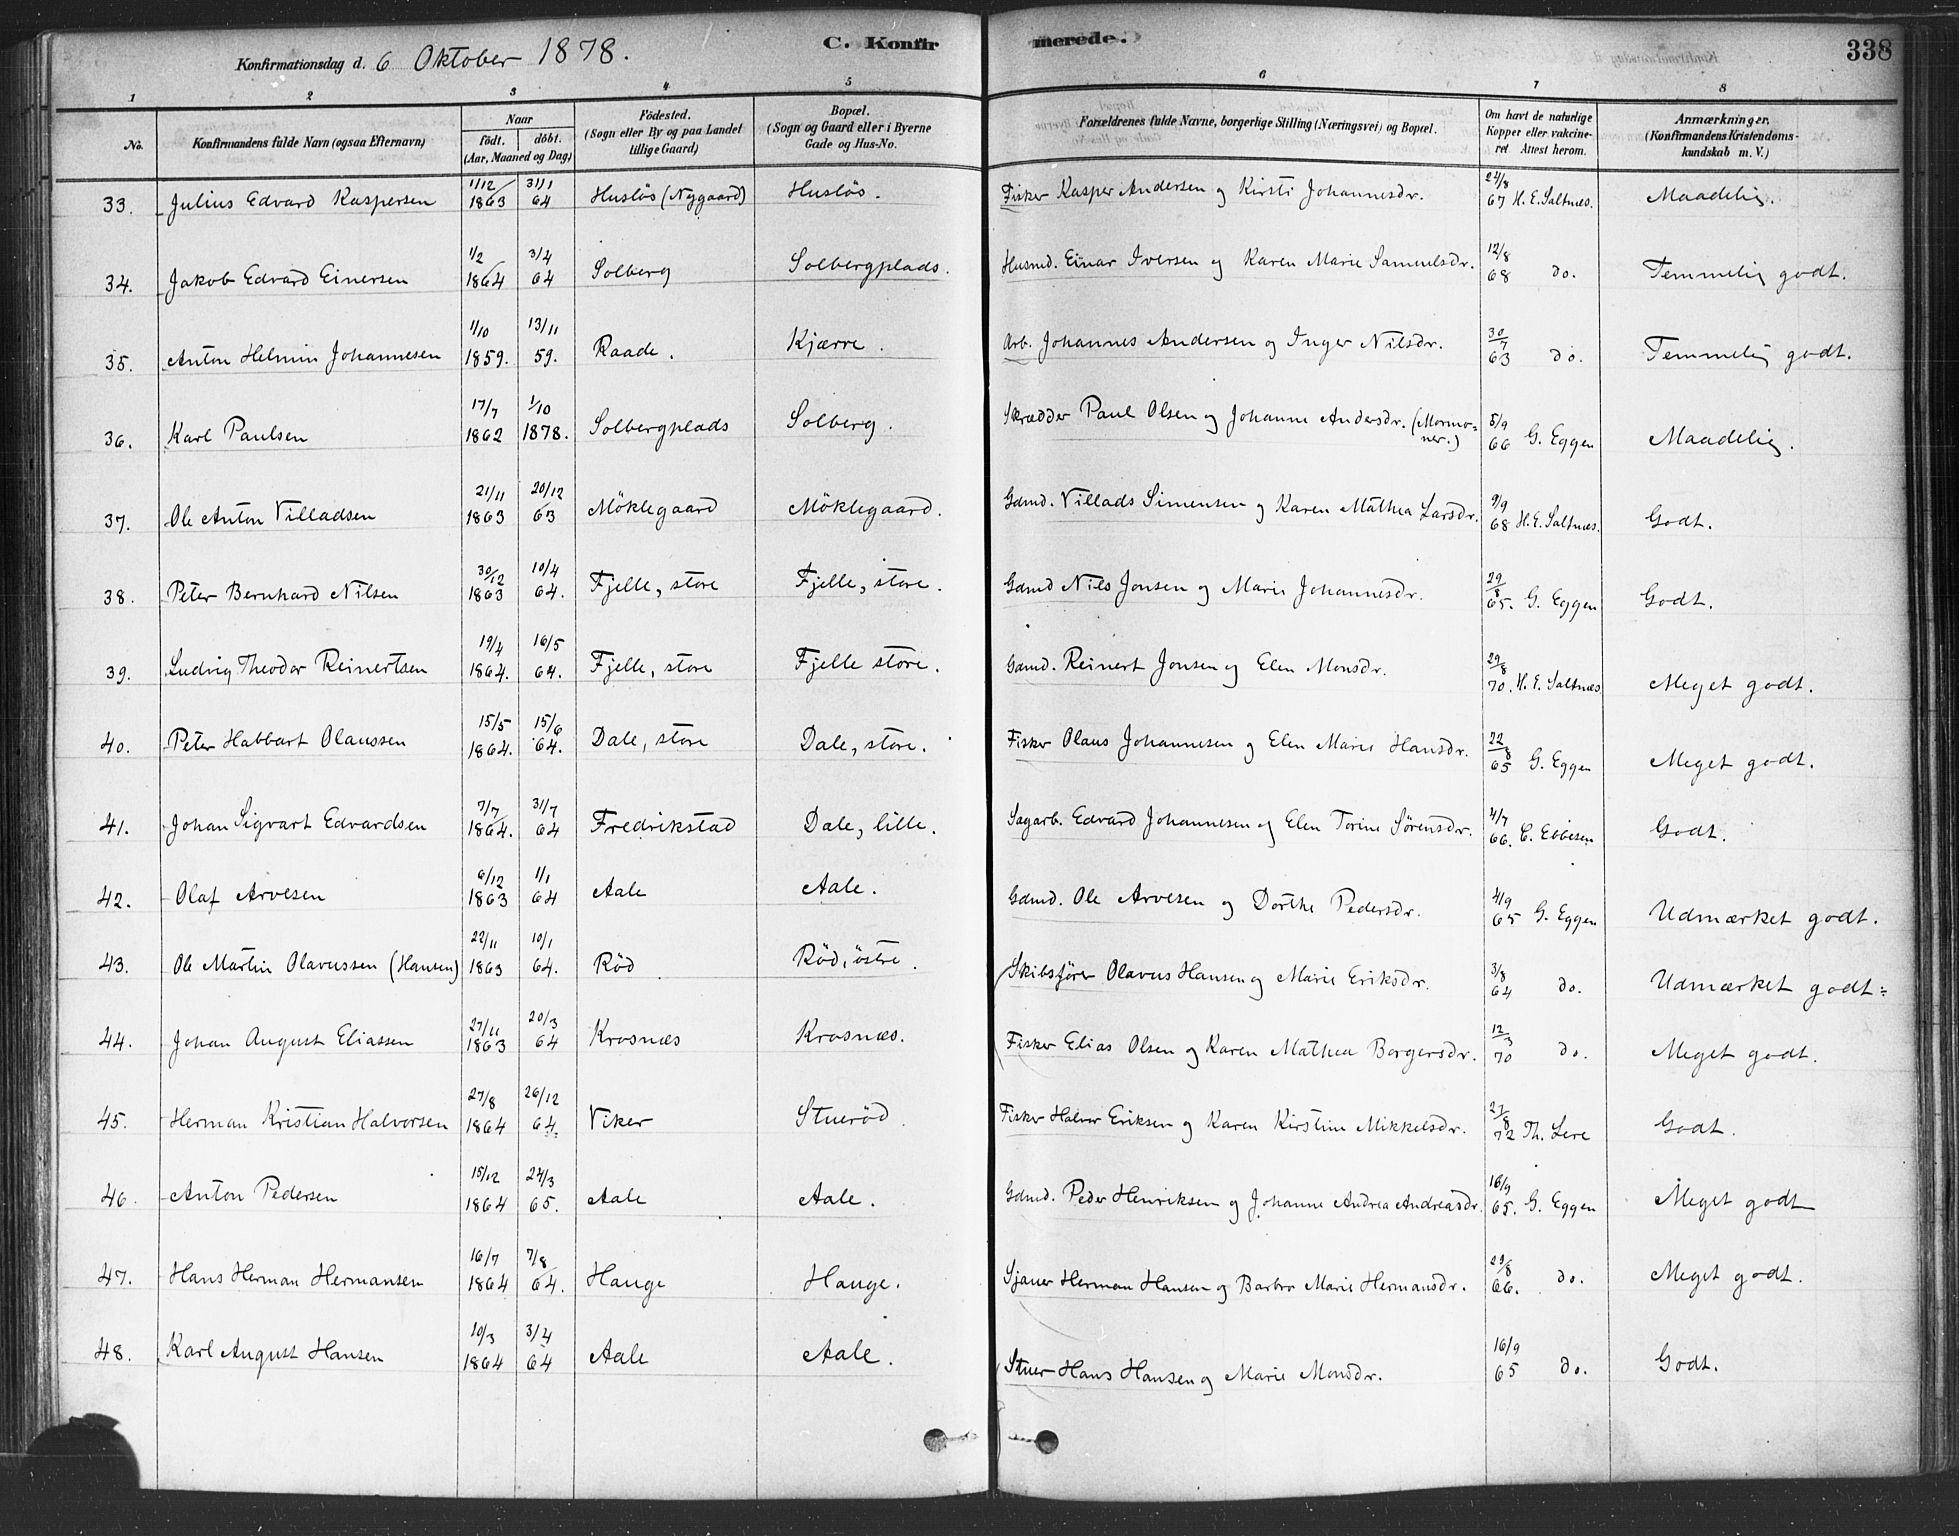 Konfirmationsdag d. 6 Oktober 1878. C. Konfirmerede. 338
1 2 3 4 5 6 7 8
No. Konfirmandens fulde Navn (ogsaa Efternavn) Naar födt. döbt. (Aar, Maaned og Dag) Födested. (Sogn eller By og paa Landet tillige Gaard) Bopæl. (Sogn og Gaard eller i Byerne Gade og Hus-No. Forældrenes fulde Navne, borgerlige Stilling (Næringsvei) og Bopæl. Om havt de naturlige Kopper eller vakcineret. Attest herom. Anmærkninger. (Konfirmandens Kristendomskundskab m. V.)
33. Julius Edvard Kaspersen 1/12 1863 31/1 64 Huslös (Nygaard) Huslös. Fisker Kasper Andersen og Kirsti Johannesdr. 24/8 67 H. E. Saltnes. Maadelig.
34. Jakob Edvard Einersen 1/2 1864 3/4 64 Solberg Solbergplads. Husmd. Einar Iversen og Karen Marie Samuelsdr. 12/8 68 do. Temmelig godt.
35. Anton Helmin Johannesen 1/10 1859. 13/11 59. Raade. Kjærre. Arb. Johannes Andersen og Inger Nilsdr. 30/7 63 do. Temmelig godt.
36. Karl Paulsen 17/7 1862 1/10 1878. Solbergplads Solberg. Skrædder Paul Olsen og Johanne Andersdr. (Mormoner.) 5/9 66 G. Eggen Maadelig.
37. Ole Anton Villadsen 21/11 1863 20/12 63 Möklegaard Möklegaard. Gdmd. Villads Simensen og Karen Mathea Larsdr. 9/9 68 H. E. Saltnæs. Godt.
38. Peter Bernhard Nilsen 30/12 1863 10/4 64. Fjelle, store Fjelle, store. Gdmd Nils Jonsen og Marie Johannesdr. 29/8 65. G. Eggen Godt.
39. Ludvig Theodor Reinertsen 19/4 1864. 16/5 64. Fjelle, store Fjelle store. Gdmd. Reinert Jonsen og Elen Monsdr. 29/8 70. H. E. Saltnæs Meget godt.
40. Peter Habbart Olaussen 15/5 1864. 15/6 64. Dale, store Dale, store. Fisker Olaus Johannesen og Elen Marie Hansdr. 22/8 65 G. Eggen Meget godt.
41. Johan Sigvart Edvardsen 7/7 1864. 31/7 64 Fredrikstad Dale, lille. Sagarb. Edvard Johannesen og Elen Torine Sörensdr. 4/7 66. C. Ebbesen Godt.
42. Olaf Arvesen 6/12 1863 1/1 64 Aale Aale. Gdmd. Ole Arvesen og Dorthe Pedersdr. 4/9 65 G. Eggen Udmærket godt.
43. Ole Martin Olavussen (Hansen) 22/11 1863 10/1 64. Röd Röd, östre. Skibsförer Olavus Hansen og Marie Eriksdr. 3/8 64 do. Udmærket godt.
44. Johan August Eliassen 27/11 1863 20/3 64 Krosnæs Krosnæs. Fisker Elias Olsen og Karen Mathea Borgersdr. 12/3 70 do. Meget godt.
45. Herman Kristian Halvorsen 27/8 1864 26/12 64. Viker Stueröd. Fisker Halvor Eriksen og Karen Kirstine Mikkelsdr. 27/8 72 Th. Lere Godt.
46. Anton Pedersen 15/12 1864 24/3 65. Aale Aale. Gdmd. Peder Henriksen og Johanne Andrea Andreasdr. 16/9 65. G. Eggen Meget godt
47. Hans Herman Hermansen 16/7 1864 7/8 64. Hauge Hauge. Sjauer Herman Hansen og Barbro Marie Hermansdr. 29/8 66. do. Meget godt.
48. Karl August Hansen 10/3 1864 3/4 64 Aale Aale. Stuer Hans Hansen og Marie Monsdr. 16/9 65 do. Godt.